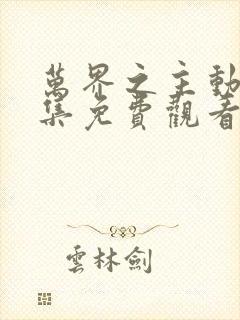 萬界之主動
集免費觀看
雲林劍